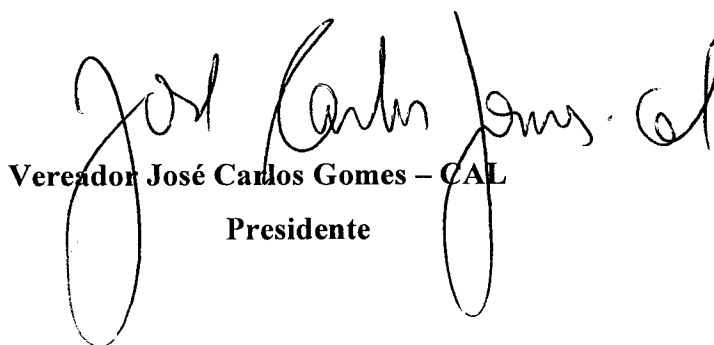 José Carlos Gomes. Cal
Vereador José Carlos Gomes – CAL
Presidente